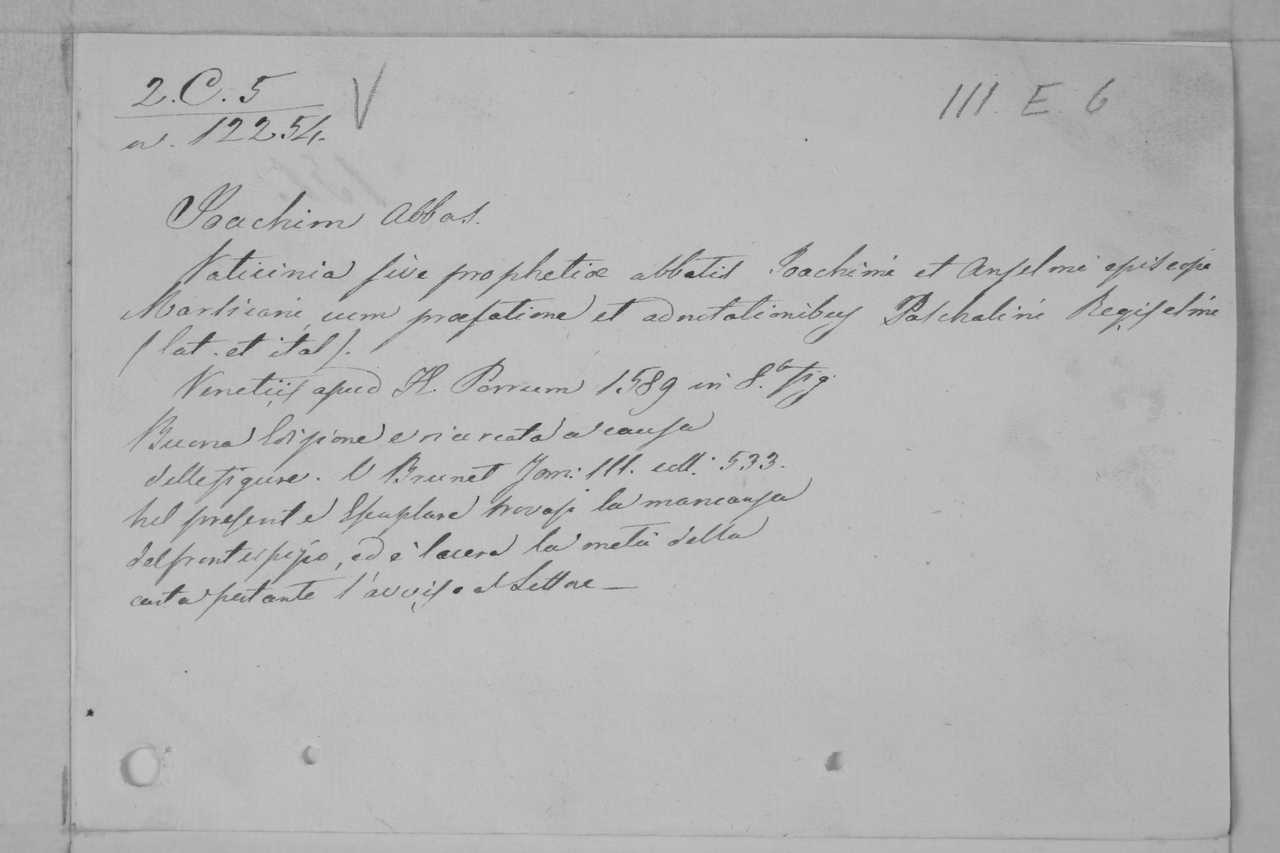 2.C.5 V III. E. 6
n. 12254.
Joachim Abbas.
Vaticinia sive prophetiæ abbatis Joachimi et Anselmi episcopi
Marsicani, cum præfatione et adnotationibus Paschalini Regiselmi
(lat. et ital).
Venetiis apud H. Porrum 1589 in 8.º fig.
Buona Edizione e ricercata a causa
delle figure. V Brunet Tom: III. coll: 533.
nel presente Esemplare trovasi la mancanza
del frontespizio, ed è lacera la metà della
carta portante l'avviso al Lettore —